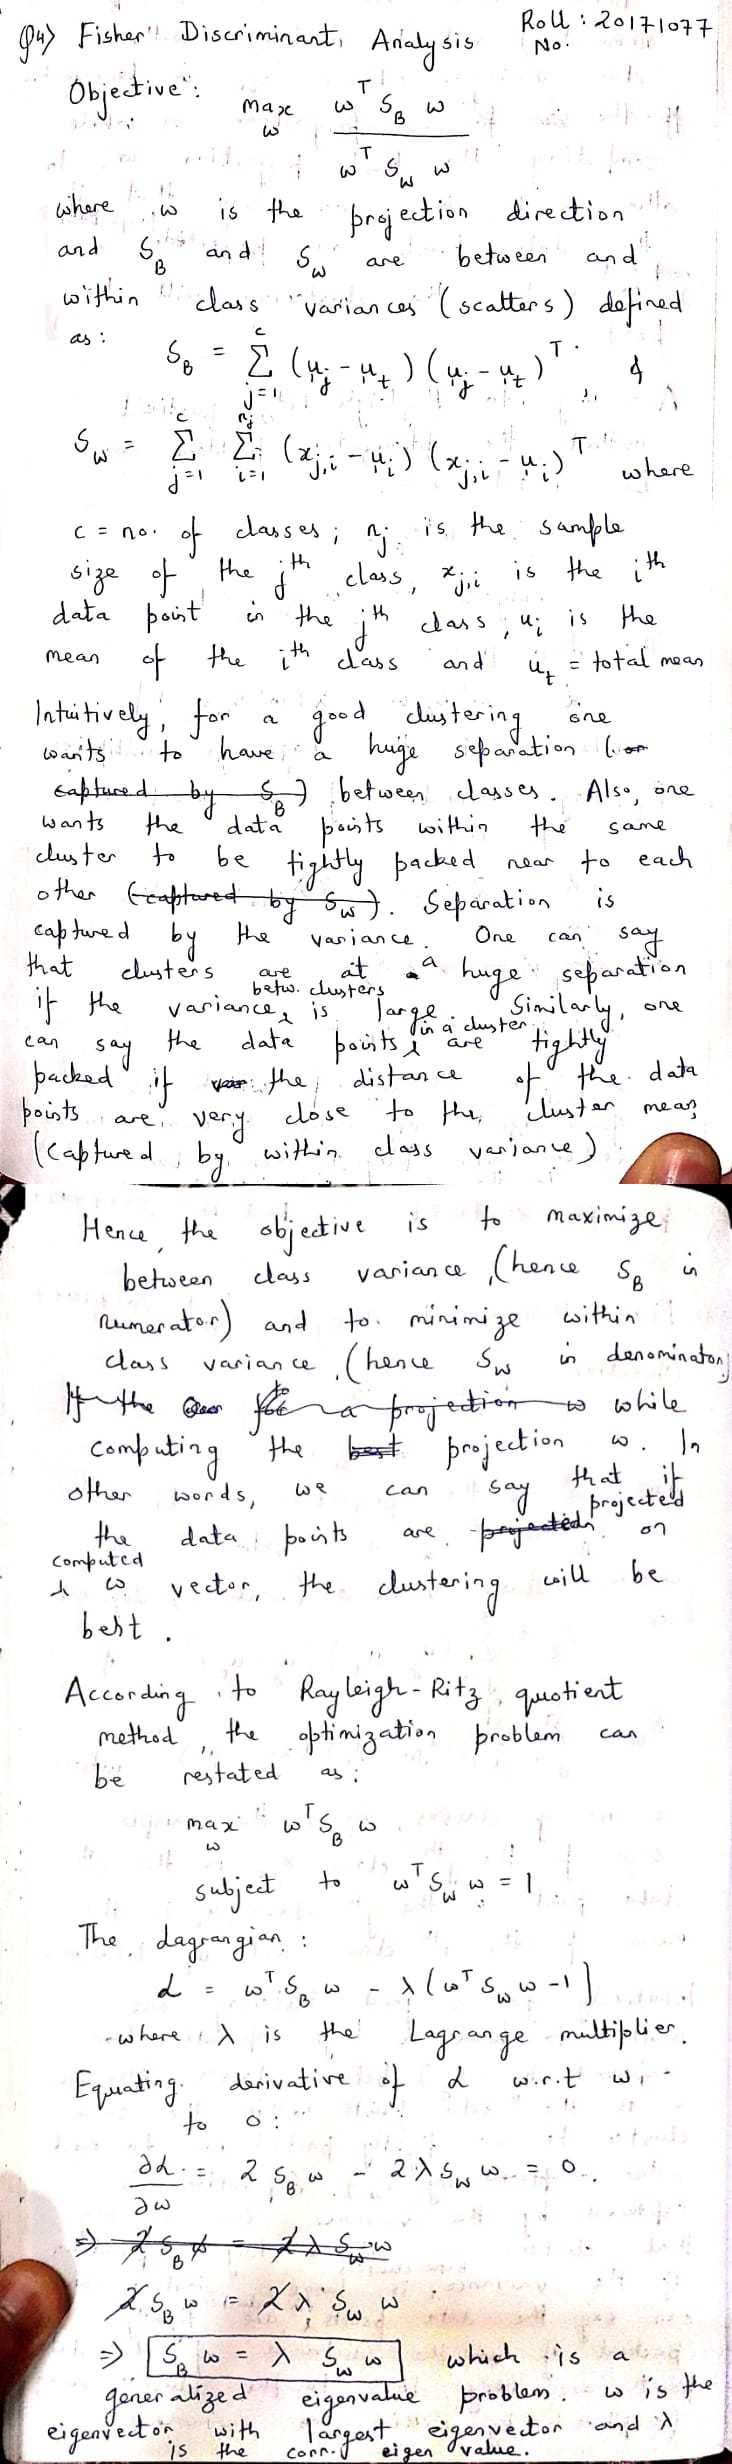 Q4) Fisher's Discriminant Analysis Roll No. : 20171077
Objective :
max w w^T S_B w / w^T S_w w
where w is the projection direction
and S_B and S_w are between and
within class variances (scatters) defined
as :
S_B = Σ_{j=1}^{c} (μ_j - μ_t) (μ_j - μ_t)^T &
S_w = Σ_{j=1}^{c} Σ_{i=1}^{n_j} (x_{j,i} - μ_i) (x_{j,i} - μ_i)^T where
c = no. of classes ; n_j is the sample
size of the j^th class, x_{j,i} is the i^th
data point in the j^th class, μ_i is the
mean of the i^th class and μ_t = total mean
Intuitively, for a good clustering one
wants to have a huge separation (or
captured by S_B) between classes. Also, one
wants the data points within the same
cluster to be tightly packed near to each
other (captured by S_w). Separation is
captured by the variance. One can say
that clusters are at a huge separation
if the variance betw. clusters is large. Similarly, one
can say the data points in a cluster are tightly
packed if var the distance of the data
points are very close to the cluster mean
(captured by within class variance)
Hence, the objective is to maximize
between class variance (hence S_B in
numerator) and to minimize within
class variance (hence S_w in denominator)
If the for to a projection w while
computing the best projection w. In
other words, we can say that if
the data points are projected projected on
computed w vector, the clustering will be
best.
According to Rayleigh-Ritz quotient
method, the optimization problem can
be restated as :
max w w^T S_B w
subject to w^T S_w w = 1
The Lagrangian :
L = w^T S_B w - λ (w^T S_w w - 1)
where λ is the Lagrange multiplier.
Equating derivative of L w.r.t w,
to 0 :
∂L/∂w = 2 S_B w - 2 λ S_w w = 0
⇒ 2 S_B w = 2 λ S_w w
2 S_B w = 2 λ S_w w
⇒ S_B w = λ S_w w which is a
generalized eigenvalue problem. w is the
eigenvector with largest eigenvector and λ
is the corr. eigen value.